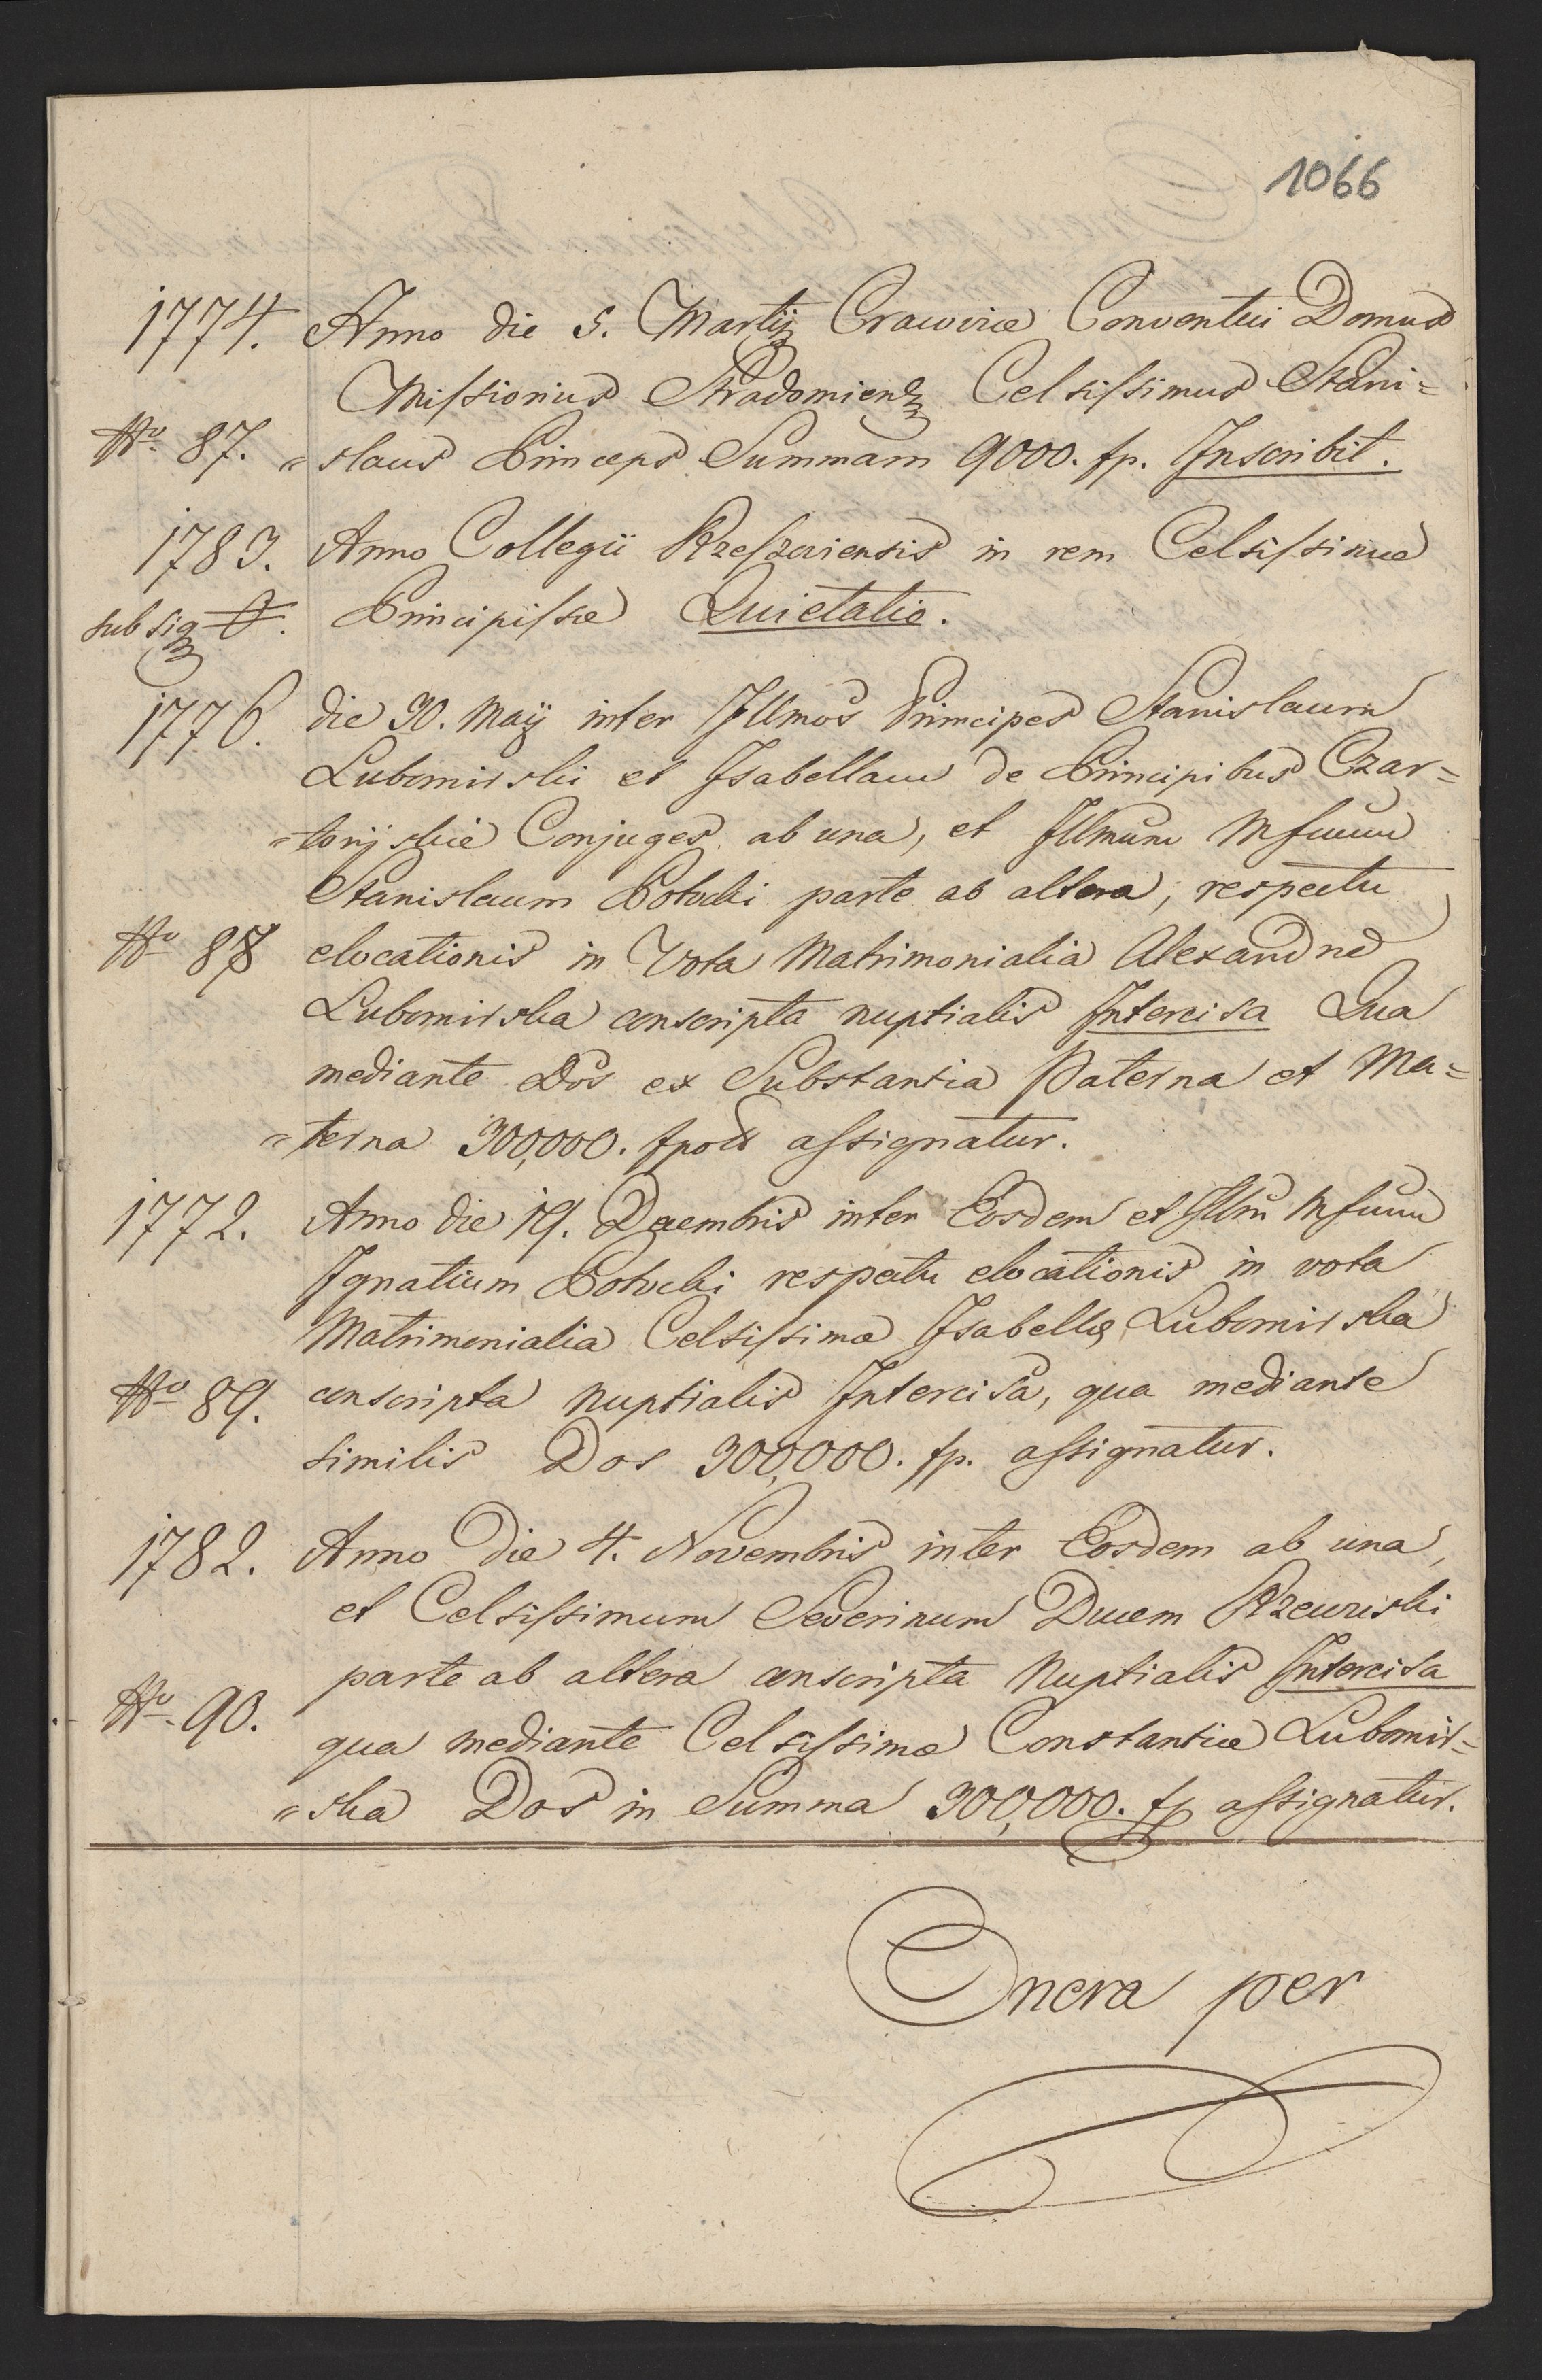 1066
1774. Anno die 5. Martij Cracoviæ Conventui Domus
Missionus Stradomiens Celsissimus Stani=
No 87. =slaus Princeps Summam 9000. fp. Inscribit.
1783. Anno Collegii Rzeszoviensis in rem Celsissimæ
sub sig Principissæ Quietatio.
1776. die 30. Maij inter Illmos Principes Stanislaum
Lubomirski et Isabellam de Principibus Czar=
=torijskie Conjuges ab una, et Illmum Mfcum
Stanislaum Potocki parte ab altera, respectu
No 88 elocationis in Vota Matrimonialia Alexandræ
Lubomirska conscripta nuptialis Intercisa Qua
mediante Dos ex Substantia Paterna et Ma=
=terna 300,000. fpol assignatur.
1772. Anno die 19. Decembris inter Eosdem et Illm Mfcum
Ignatium Potocki respectu elocationis in vota
Matrimonialia Celsissimæ Isabellæ Lubomirska
No 89. conscripta nuptialis Intercisa, qua mediante
similis Dos 300,000. fp. assignatur.
1782. Anno Die 4. Novembris inter Eosdem ab una,
et Celsissimum Severinum Ducem Rzewuski
parte ab altera conscripta Nuptialis Intercisa
No 90. qua mediante Celsissimæ Constantiæ Lubomir=
=ska Dos in Summa 300,000. fp assignatur.
Onera per